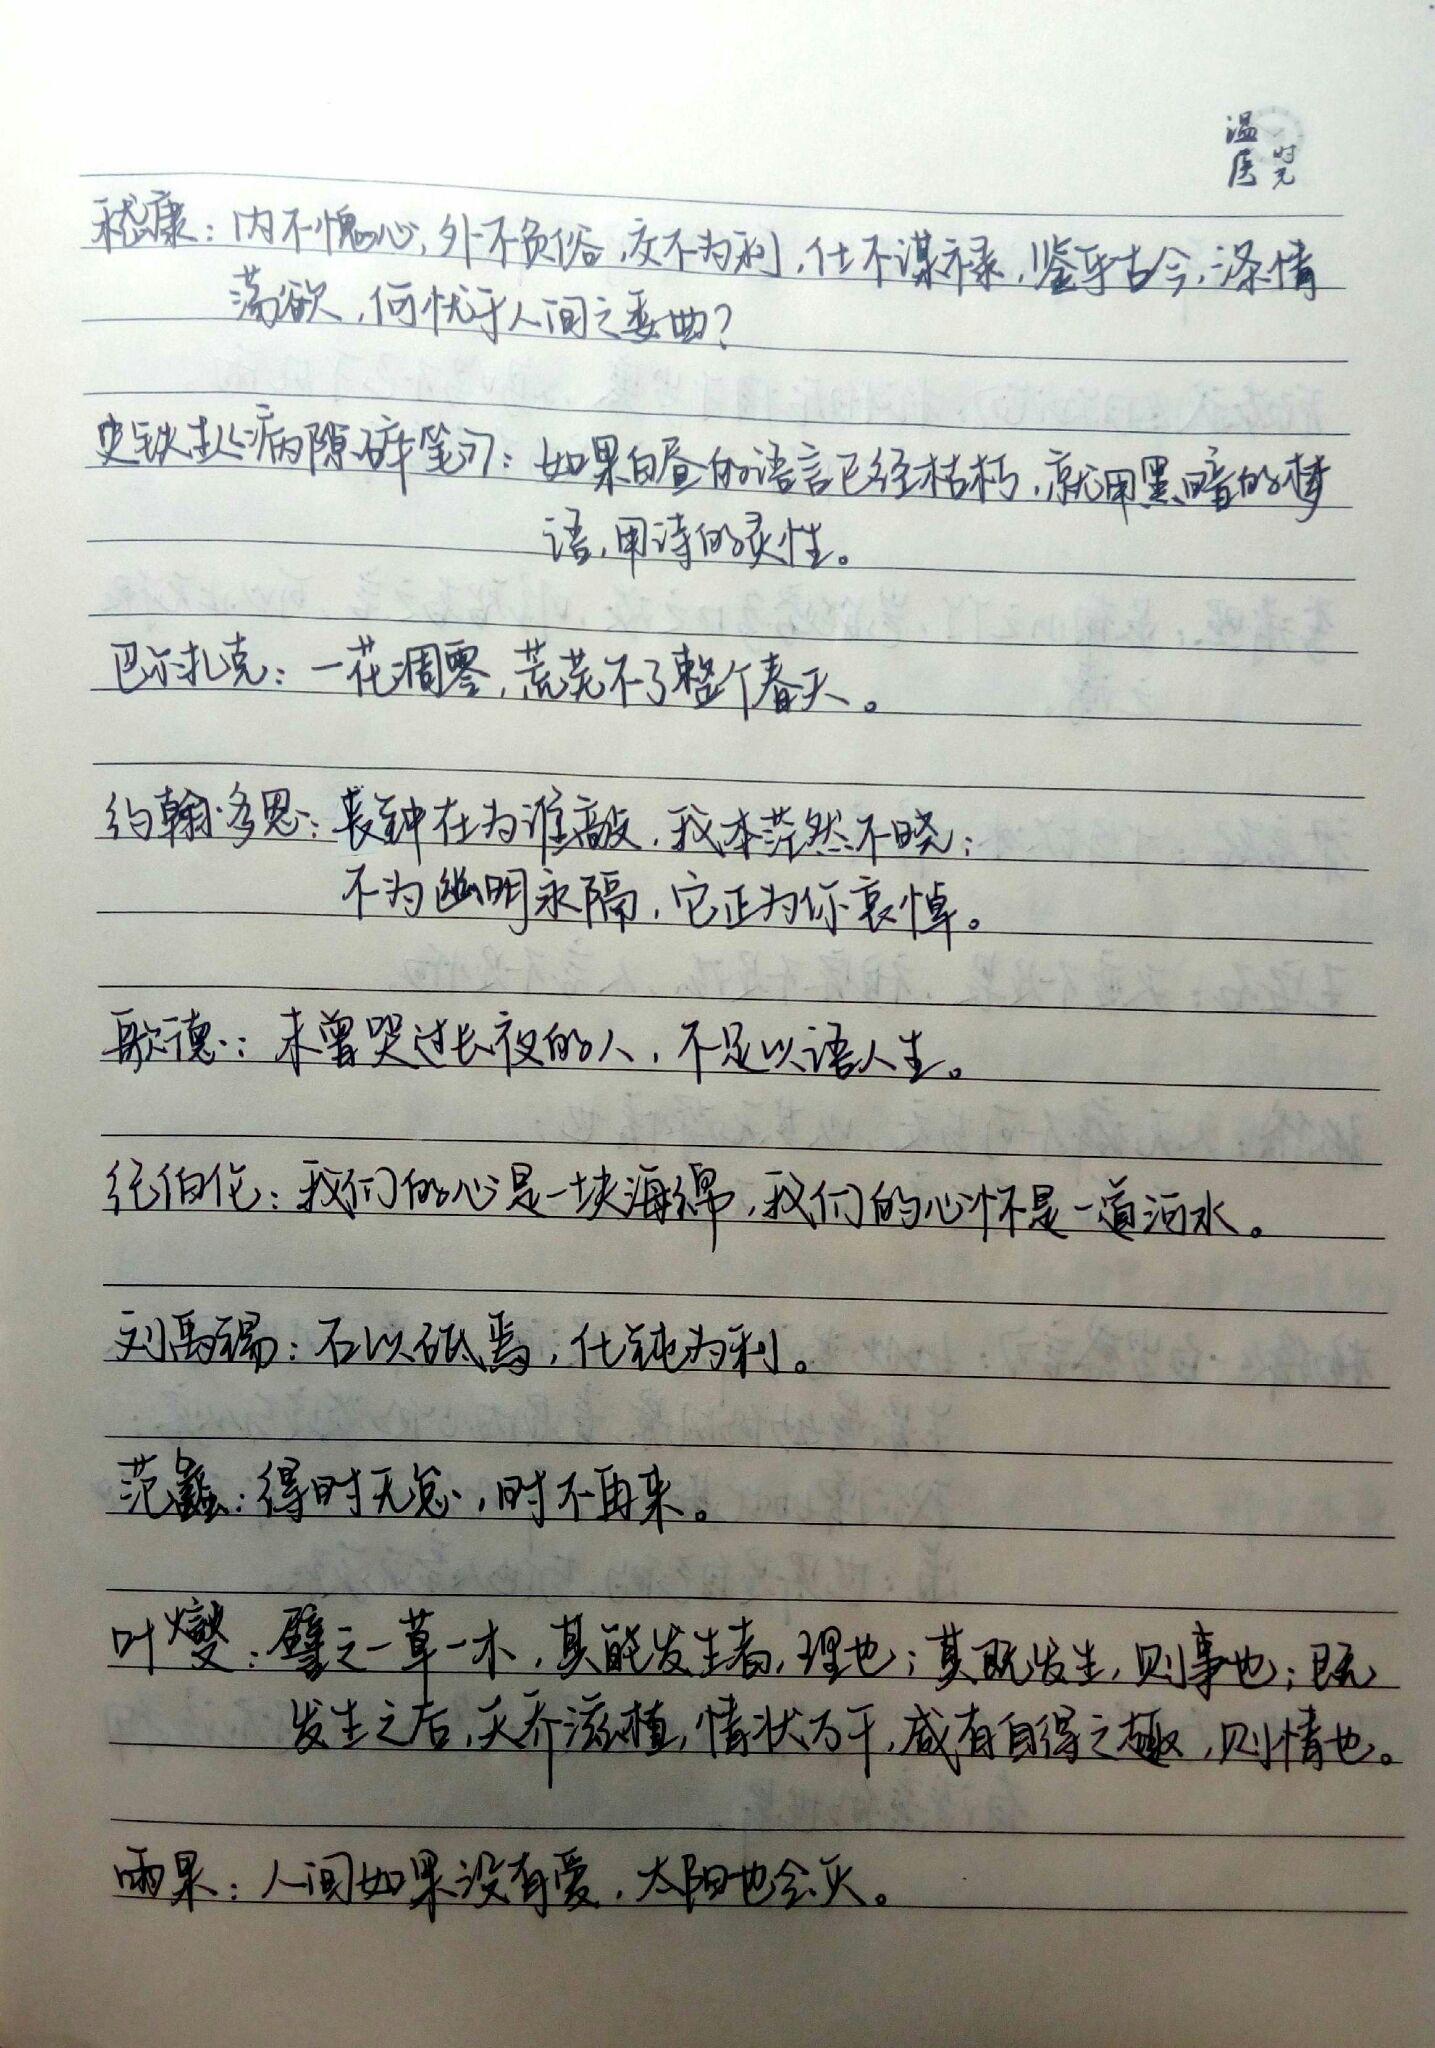 温医时光
嵇康：内不愧心，外不负俗，交不为利，仕不谋禄，鉴乎古今，涤情
荡欲，何忧于人间之委曲？
史铁生《病隙碎笔》：如果白昼的语言已经枯朽，就用黑暗的梦
语，用诗的灵性。
巴尔扎克：一花凋零，荒芜不了整个春天。
约翰·多恩：丧钟在为谁敲，我本茫然不晓；
不为幽明永隔，它正为你哀悼。
歌德：未曾哭过长夜的人，不足以语人生。
纪伯伦：我们的心是一块海绵，我们的心怀是一道河水。
刘禹锡：石以砥焉，化钝为利。
范蠡：得时无怠，时不再来。
叶燮：譬之一草一木，其能发生者，理也；其既发生，则事也；既
发生之后，夭乔滋植，情状万千，咸有自得之趣，则情也。
雨果：人间如果没有爱，太阳也会灭。